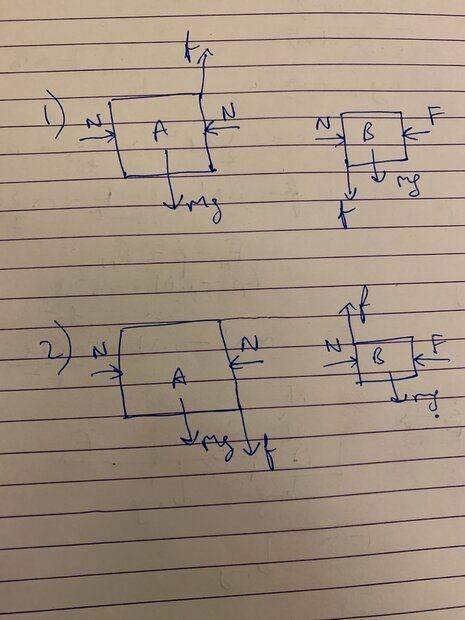 f
1) N A N N B F
mg mg
f
f
2) N A N N B F
mg f mg